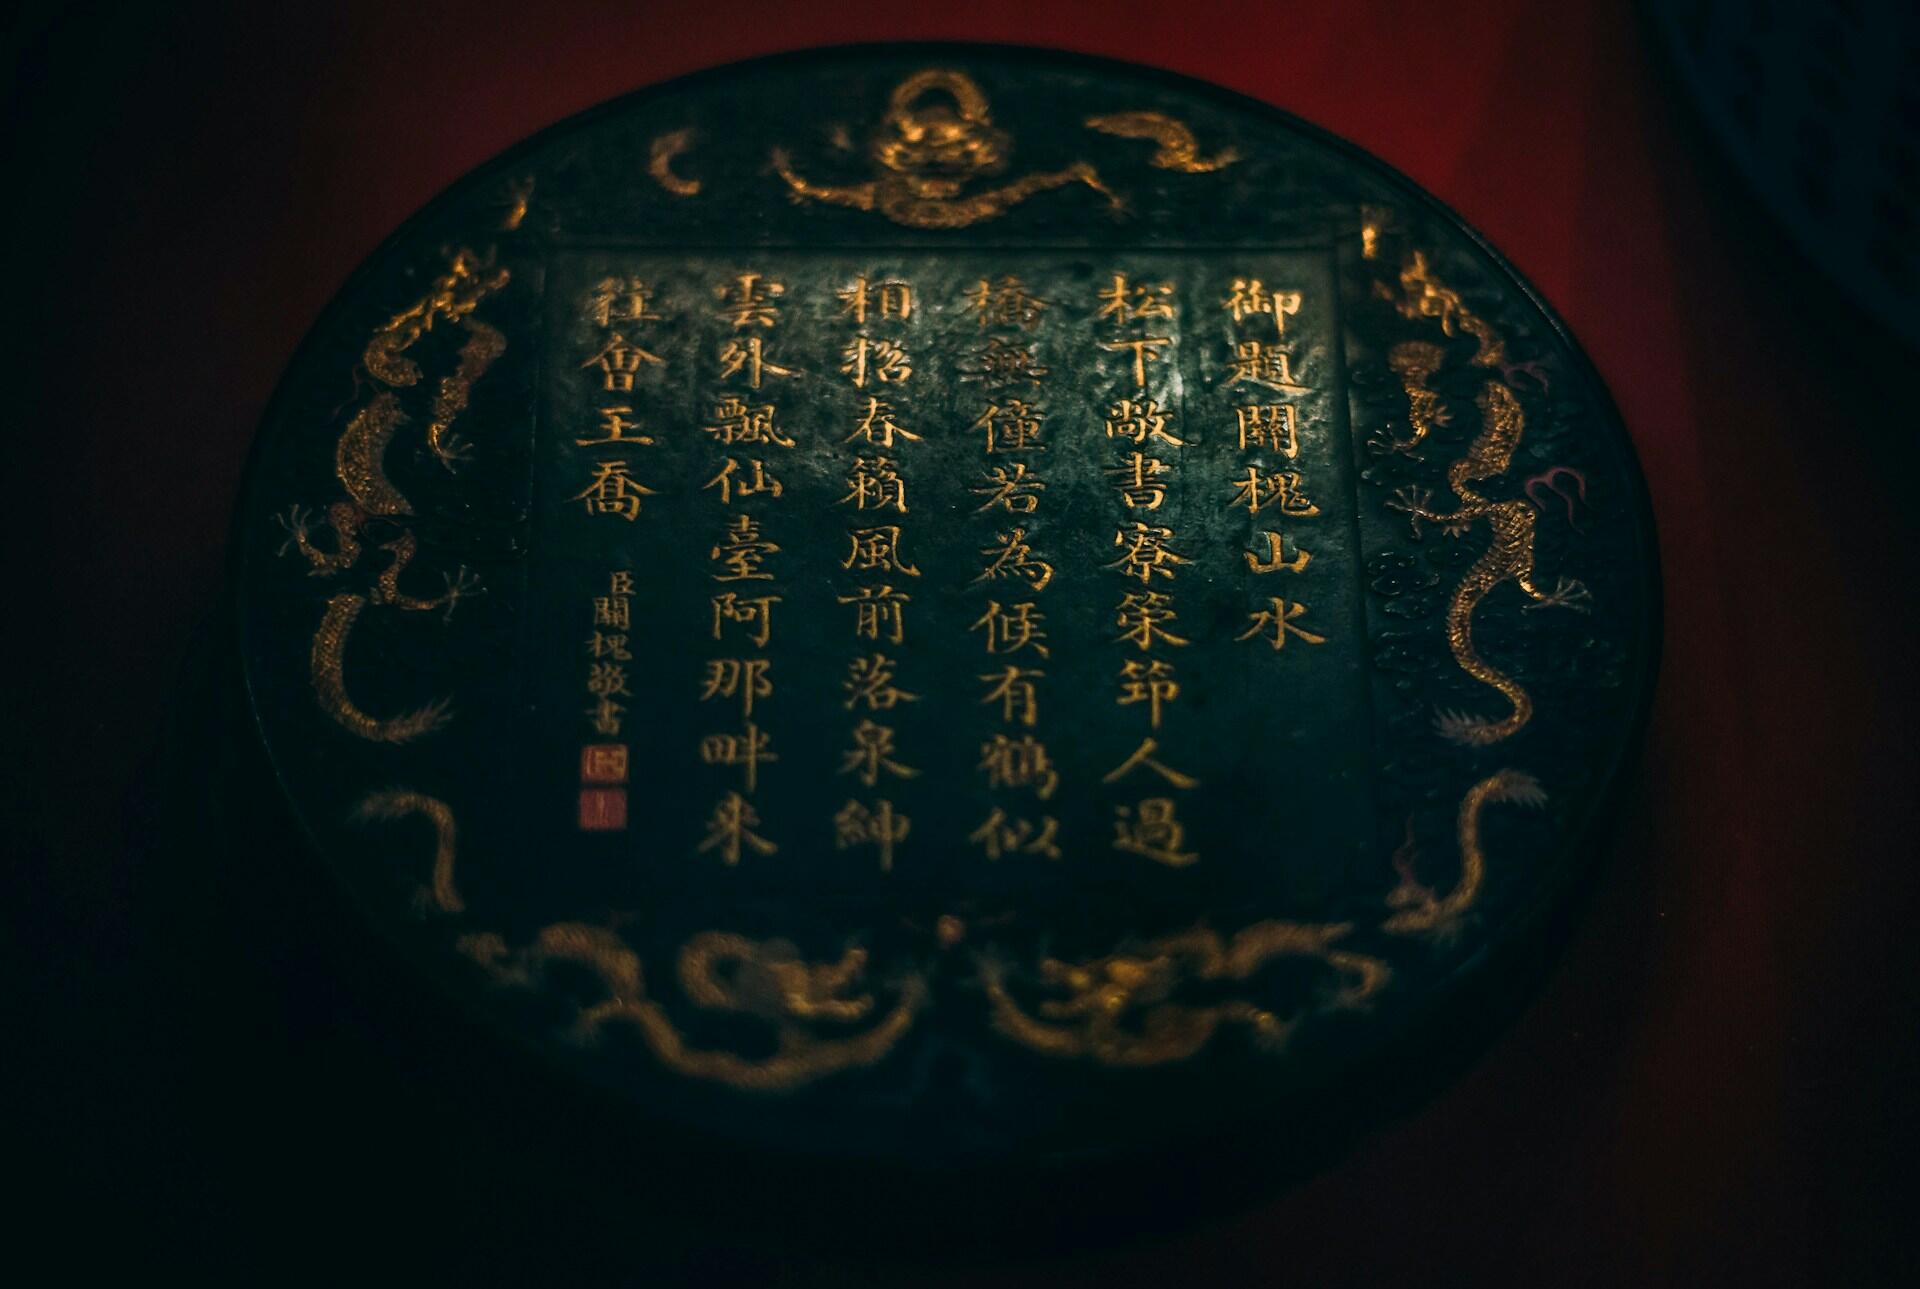 御題關槐山水
松下敞書寮策笻人過
橋無僮若為候有鶴似
相招春籟風前落泉紳
雲外飄仙臺阿那畔來
往會王喬
臣關槐敬書